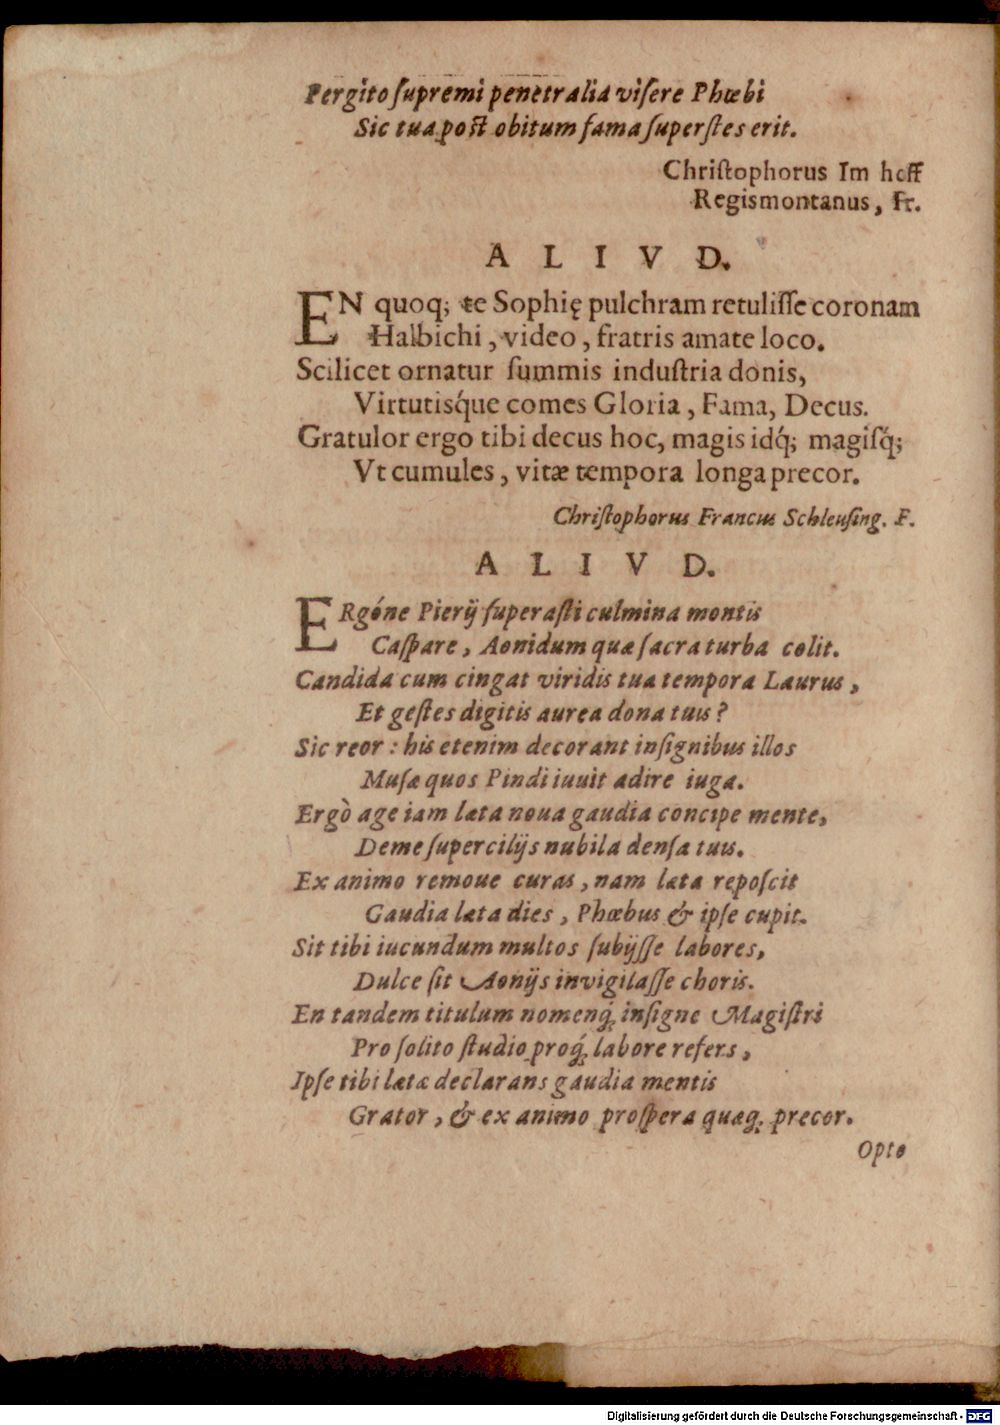 Pergito ſupremi penetralia viſere Phœbi
Sic tua poſt obitum fama ſuperſtes erit.
Chriſtophorus Im hoff
Regismontanus, Fr.
A L I V D.
EN quoq; te Sophię pulchram retuliſſe coronam
Halbichi, video, fratris amate loco.
Scilicet ornatur ſummis induſtria donis,
Virtutisq́ue comes Gloria, Fama, Decus.
Gratulor ergo tibi decus hoc, magis idq́; magiſq́;
Vt cumules, vitæ tempora longa precor.
Chriſtophorus Francus Schleuſing. F.
A L I V D.
ERgóne Pierij ſuperaſti culmina montis
Caſpare, Aonidum quæ ſacra turba colit.
Candida cum cingat viridis tua tempora Laurus,
Et geſtes digitis aurea dona tuis?
Sic reor: his etenim decorant inſignibus illos
Muſæ quos Pindi iuuit adire iuga.
Ergò age iam læta noua gaudia concipe mente,
Deme ſupercilijs nubila denſa tuis.
Ex animo remoue curas, nam læta repoſcit
Gaudia læta dies, Phœbus & ipſe cupit.
Sit tibi iucundum multos ſubijſſe labores,
Dulce ſit Aonijs invigilaſſe choris.
En tandem titulum nomenq́; inſigne Magiſtri
Pro ſolito ſtudio proq́; labore refers,
Ipſe tibi lætæ declarans gaudia mentis
Grator, & ex animo proſpera quæq; precor.
Opto
Digitalisierung gefördert durch die Deutsche Forschungsgemeinschaft - DFG